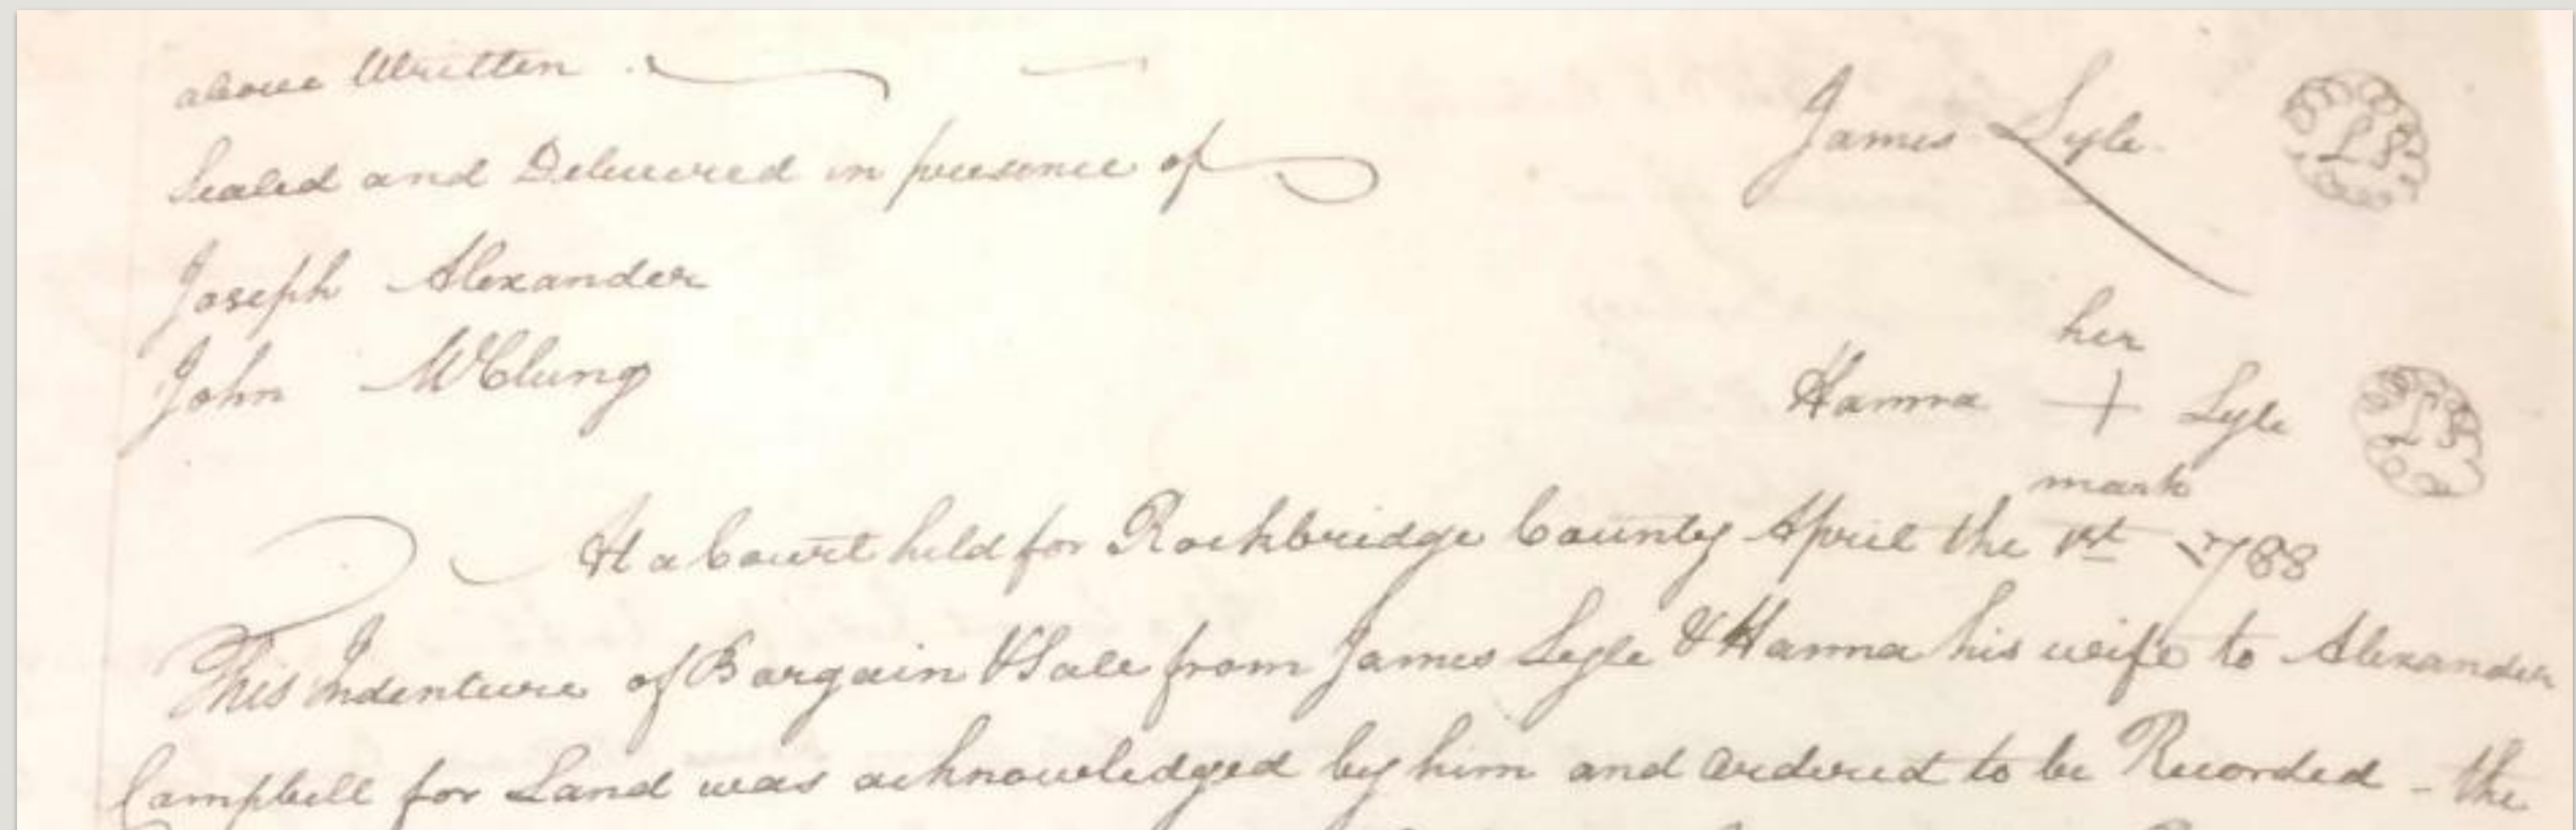 above Written
James Lyle LS
Sealed and Delivered in presence of
Joseph Alexander
her
John McClung
Hanna + Lyle LS
mark
At a Court held for Rockbridge County April the 1st 1788
This Indenture of Bargain & Sale from James Lyle & Hanna his wife to Alexander
Campbell for Land was acknowledged by him and ordered to be Recorded - the